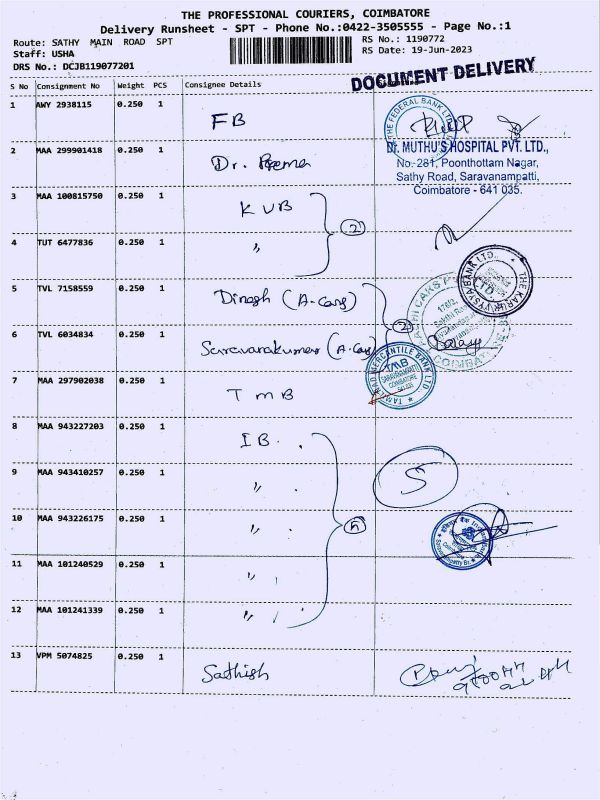 THE PROFESSIONAL COURIERS, COIMBATORE
Delivery Runsheet - SPT - Phone No.:0422-3505555 - Page No.:1
Route: SATHY MAIN ROAD SPT
RS No.: 1190772
Staff: USHA
RS Date: 19-Jun-2023
DRS No.: DCJB119077201
DOCUMENT DELIVERY
S No Consignment No Weight PCS Consignee Details
1 AWY 2938115 0.250 1 FB
THE FEDERAL BANK LTD
Dr. MUTHU'S HOSPITAL PVT. LTD.,
No. 281, Poonthottam Nagar,
Sathy Road, Saravanampatti,
Coimbatore - 641 035.
2 MAA 299901418 0.250 1 Dr. Prema
3 MAA 100815750 0.250 1 KVB
2
4 TUT 6477836 0.250 1 "
THE KARUR VYSYA BANK LTD.
5 TVL 7158559 0.250 1 Dinesh (A-Cars)
2
6 TVL 6034834 0.250 1 Saravanakumar (A-Cars)
7 MAA 297902038 0.250 1 TMB
TAMILNAD MERCANTILE BANK LTD.
TMB
SARAVANAMPATTI
COIMBATORE
8 MAA 943227203 0.250 1 IB
9 MAA 943410257 0.250 1 "
5
10 MAA 943226175 0.250 1 "
5
11 MAA 101240529 0.250 1 "
12 MAA 101241339 0.250 1 "
13 VPM 5074825 0.250 1 Sathish